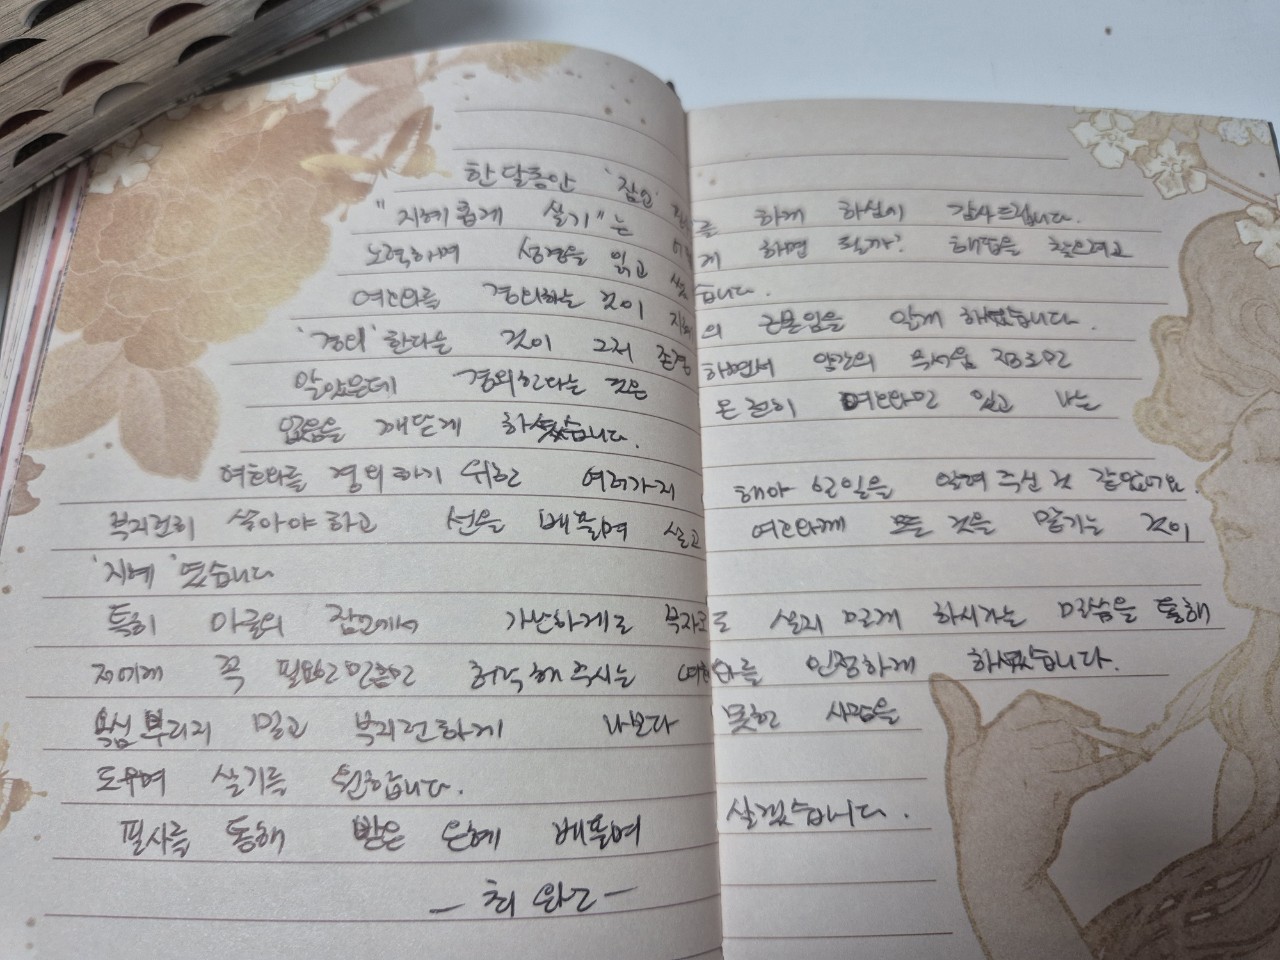 한 달동안 '잠언' 필사를 하게 하심이 감사드립니다.
"지혜롭게 살기"는 어떻게 하면 될까? 해답을 찾으려고
노력하며 성경을 읽고 습니다.
여호와를 경외하는 것이 지혜의 근본임을 알게 하셨습니다.
'경외'한다는 것이 그저 존경하면서 약간의 무서움
알았은데 경외한다는 것은 온전히 여호와만 있고 나는
없음을 깨닫게 하셨습니다.
여호와를 경외하기 위한 여러가지 해야 할일을 알려 주신 것 같았어요.
부지런히 살아야 하고 선을 베풀며 살고 여호와께 모든 것을 맡기는 것이
'지혜'였습니다
특히 아굴의 잠언에서 가난하게도 부자로도 살지 말게 하시라는 말씀을 통해
저에게 꼭 필요한만큼만 허락해 주시는 여호와를 인정하게 하셨습니다.
욕심부리지 말고 부지런하게 나보다 못한 사람을
도우며 살기를 원합니다.
필사를 통해 받은 은혜 베풀며 살겠습니다.